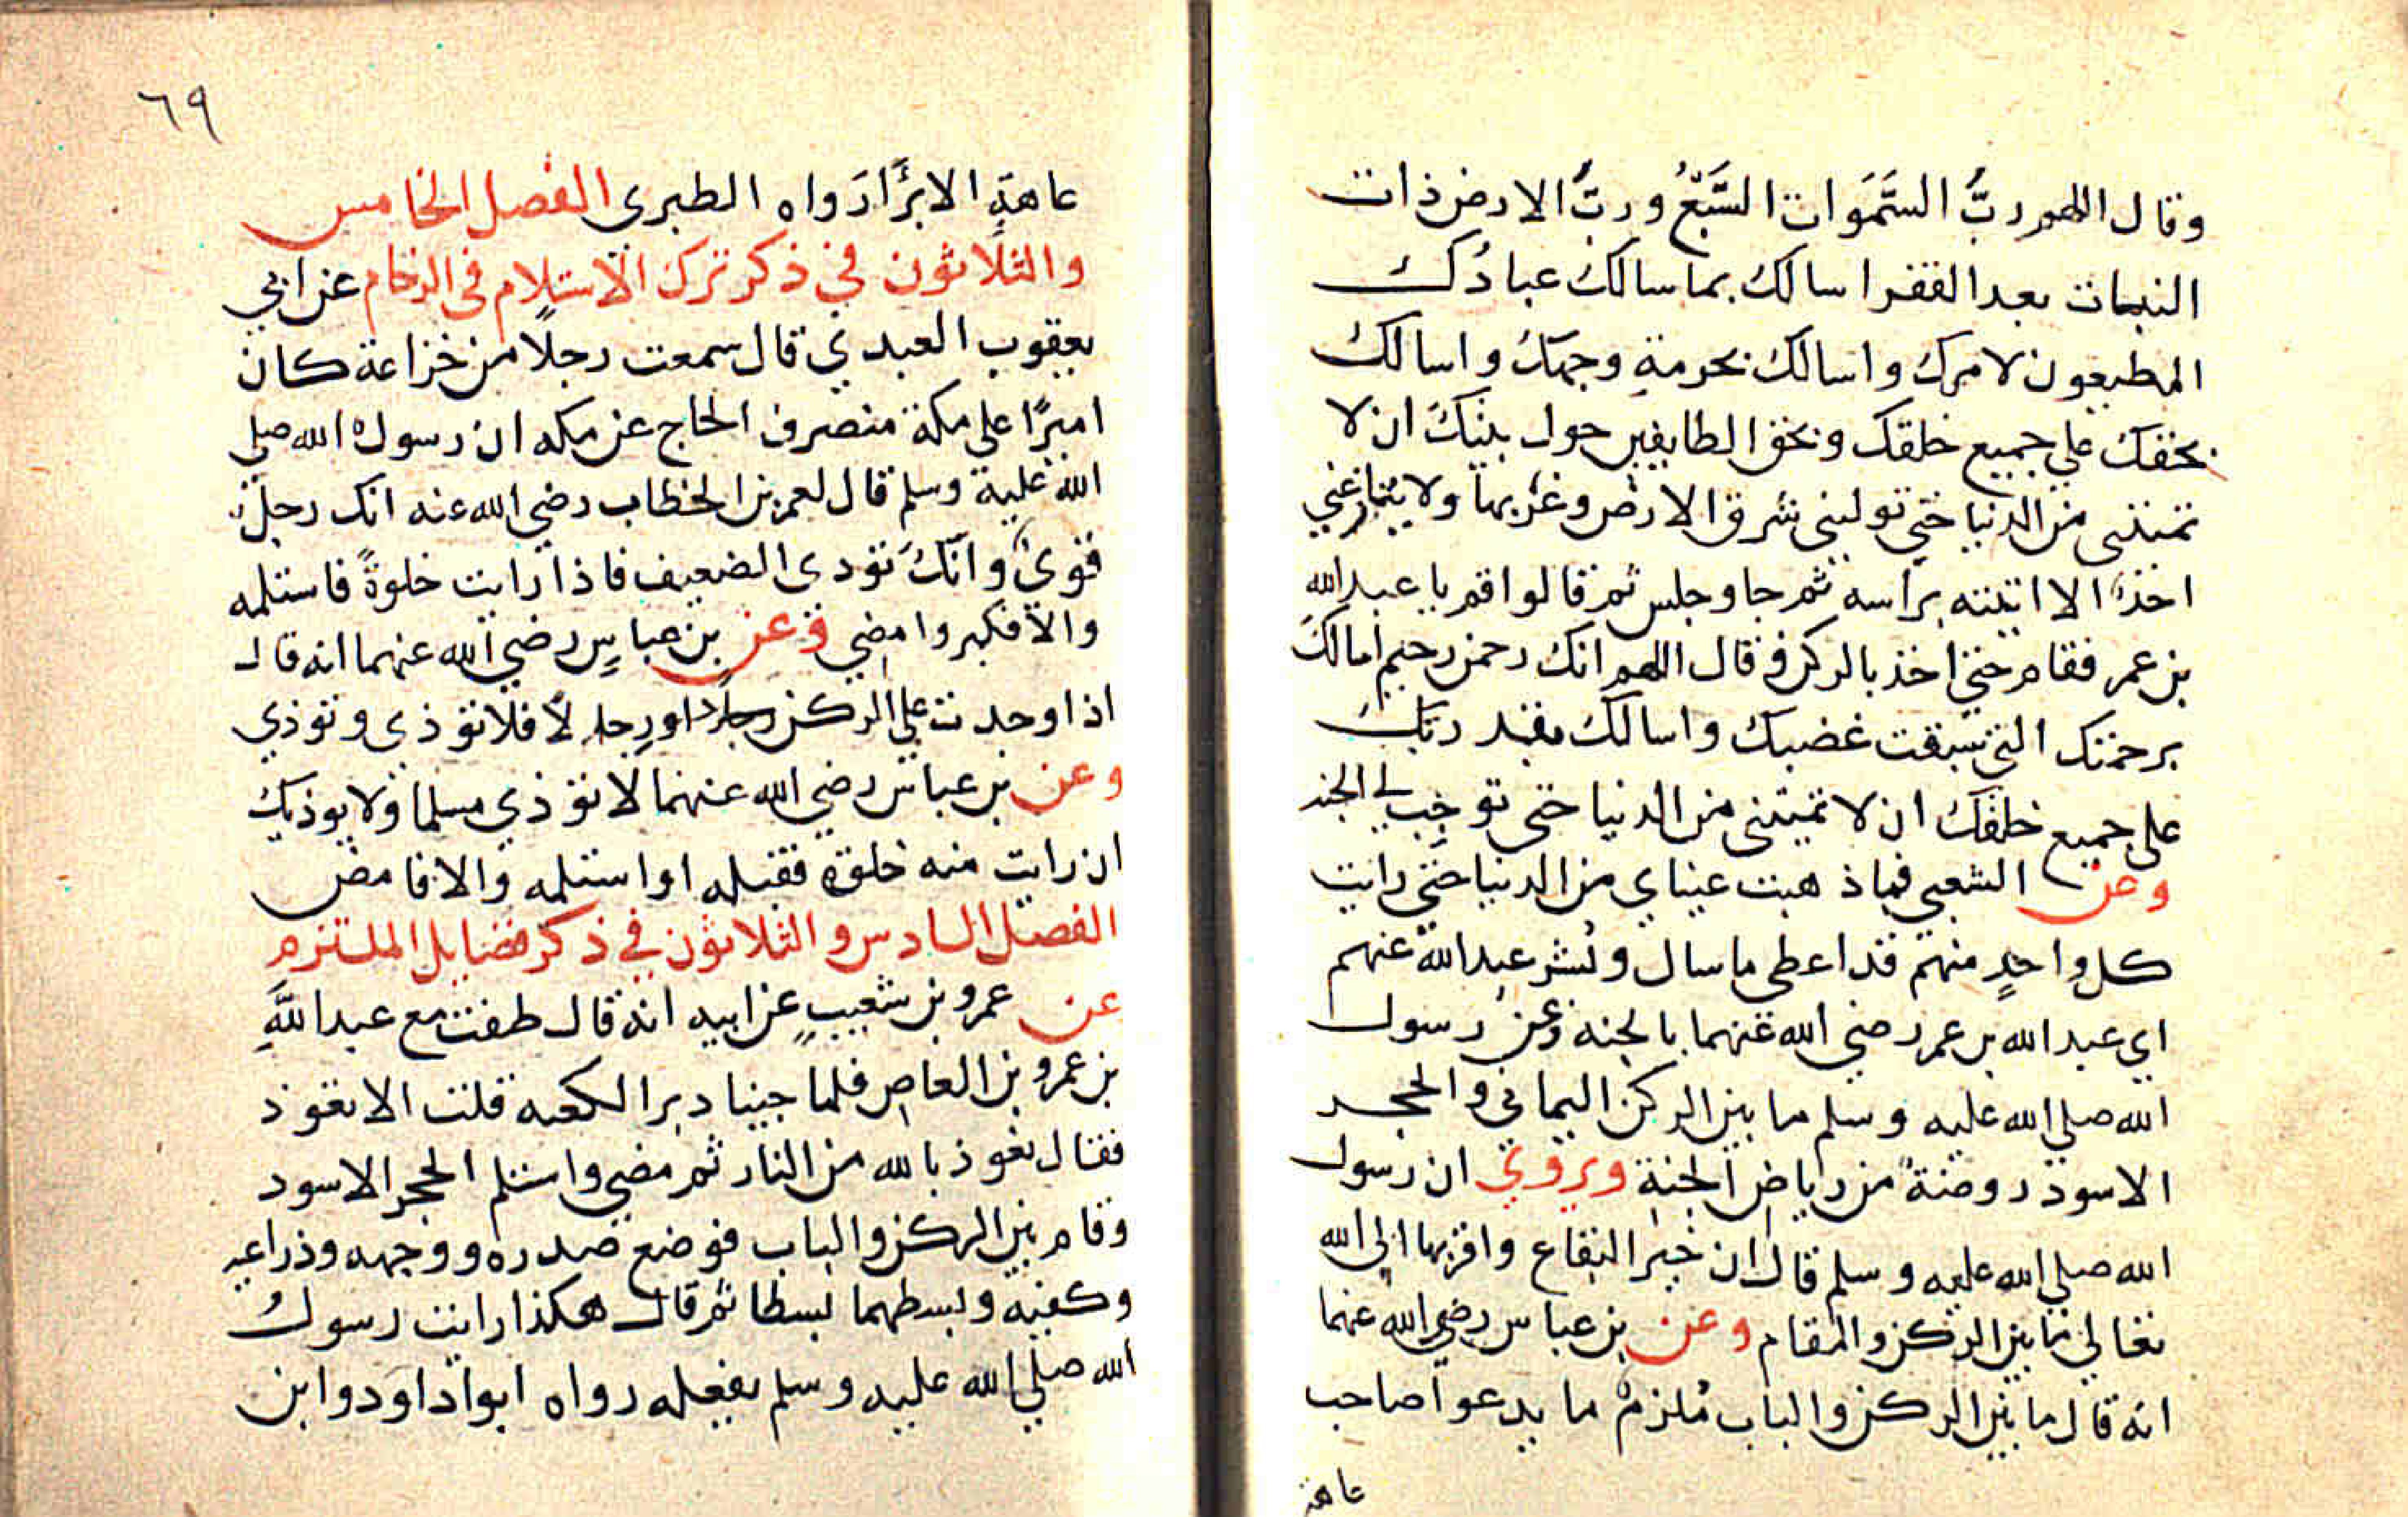 وقال اللهم ربُّ السَّمَوات السَّبْعُ وربُّ الارض ذات
النبات بعد القفر اسالك بما سالك عبادُك
المطيعون لامرك واسالك بحرمةِ وجهك واسالك
بحقك على جميع خلقك وبحق الطايفين حول بيتكَ ان لا
تميتنى من الدنيا حتي توليني شرق الارض وغربها ولا ينازعني
احدٌ الا اتيته براسه ثم جا وجلس ثم قالوا قم يا عبد الله
بن عمر فقام حتي اخذ بالركن وقال اللهم انك رحمن رحيم اسالك
برحمتك التي سبقت غضبك واسالك بقدرتكَ
على جميع خلقك ان لا تميتنى من الدنيا حتى توجب لي الجنه
وعن الشعبي فما ذهبت عيناي من الدنيا حتي رايت
كل واحدٍ منهم قد اعطى ما سال وبُشر عبد الله عنهم
اي عبد الله بن عمر رضي الله عنهما بالجنه وعن رسول
الله صلي الله عليه وسلم ما بين الركن اليماني والحجر
الاسود روضةٌ من رياض الجنة ويروي ان رسول
الله صلي الله عليه وسلم قال ان خير البقاع واقربها الي الله
تعالي ما بين الركن والمقام وعن بن عباس رضي الله عنهما
انه قال ما بين الركن والباب مُلزمٌ ما يدعوا صاحب
عاهة
٦٩
عاهةٍ الا برَّا رَواه الطبرى الفصل الخامس
والثلاثون في ذكر ترك الاستلام فى الزحام عن ابي
يعقوب العبدي قال سمعت رجلًا من خزاعة كان
اميرًا على مكة منصرف الحاج عن مكه ان رسول الله صلي
الله عليه وسلم قال لعمر بن الخطاب رضي الله عنه انك رجلٌ
قوىٌ وانّكَ تؤدى الضعيف فاذا رايت خلوةً فاستلمه
والا فكبر وامضي وعن بن عباسٍ رضي الله عنهما انه قال
اذا وجدت علي الركن اورجلا لًا فلا تؤذي وتوذي
وعن بن عباس رضي الله عنهما لا تؤذي مسلما ولا يوذيك
ان رايت منه خلوة فقبله او استلمه والا فامض
الفصل السادس والثلاثون في ذكر فضايل الملتزم
عن عمرو بن شعيبٍ عن ابيه انه قال طفت مع عبد اللهِ
بن عمرو بن العاص فلما جينا دبر الكعبه قلت الا تعوذ
فقال نعوذ بالله من النار ثم مضي واستلم الحجر الاسود
وقام بين الركن والباب فوضع صدره ووجهه وذراعيه
وكفيه وبسطهما بسطا ثم قال هكذا رايت رسول
الله صلي الله عليه وسلم يفعله رواه ابوا داود وابن